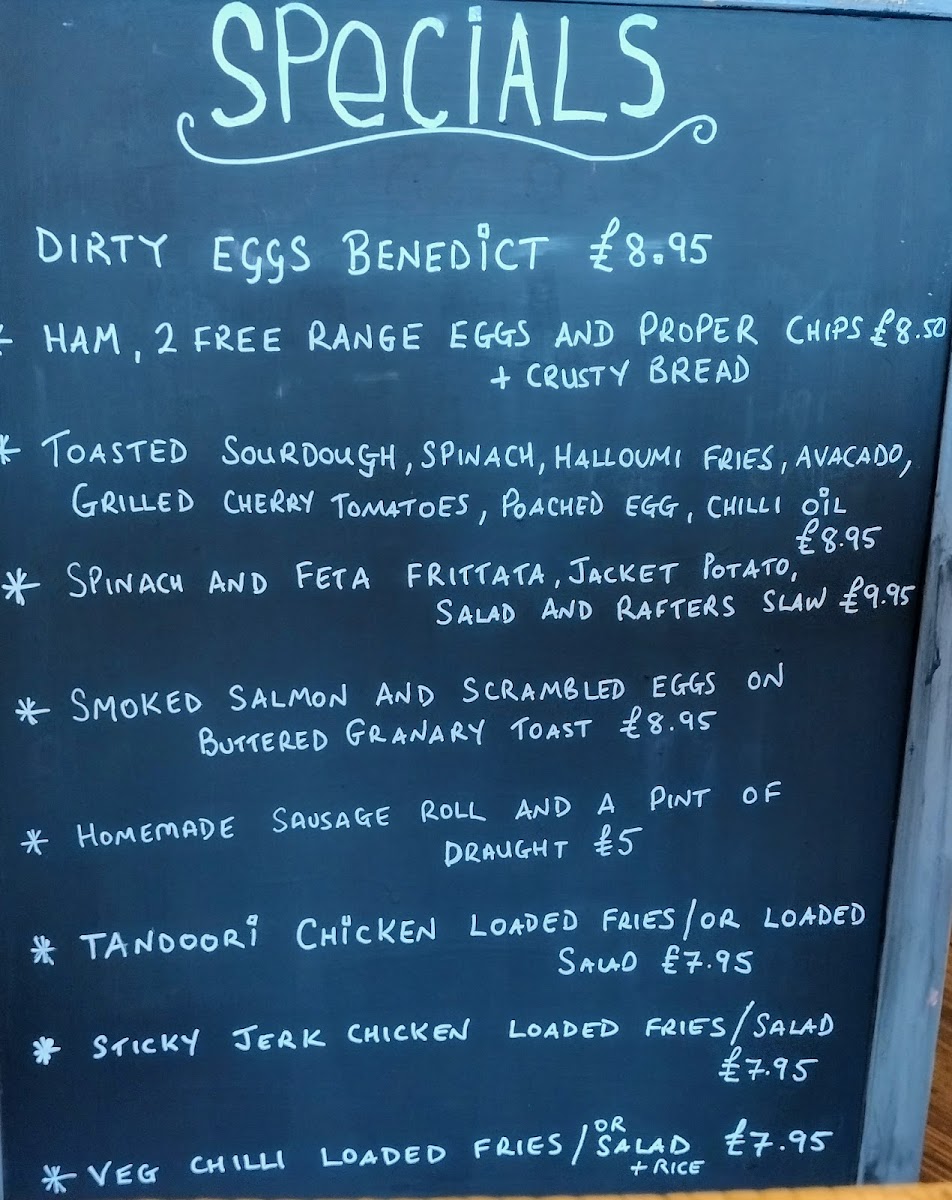 SPeCiALS
DIRTY EGGS BENEDiCT £8.95
* HAM, 2 FREE RANGE EGGS AND PROPER CHIPS £8.50
+ CRUSTY BREAD
* TOASTED SOURDOUGH, SPINACH, HALLOUMI FRIES, AVACADO,
GRILLED CHERRY TOMATOES, POACHED EGG, CHILLI OiL
£8.95
* SPINACH AND FETA FRITTATA, JACKET POTATO,
SALAD AND RAFTERS SLAW £9.95
* SMOKED SALMON AND SCRAMBLED EGGS ON
BUTTERED GRANARY TOAST £8.95
* HOMEMADE SAUSAGE ROLL AND A PINT OF
DRAUGHT £5
* TANDOORi CHiCKEN LOADED FRIES/OR LOADED
SALAD £7.95
* STICKY JERK CHICKEN LOADED FRIES/SALAD
£7.95
* VEG CHILLI LOADED FRIES/OR SALAD £7.95
+ RICE